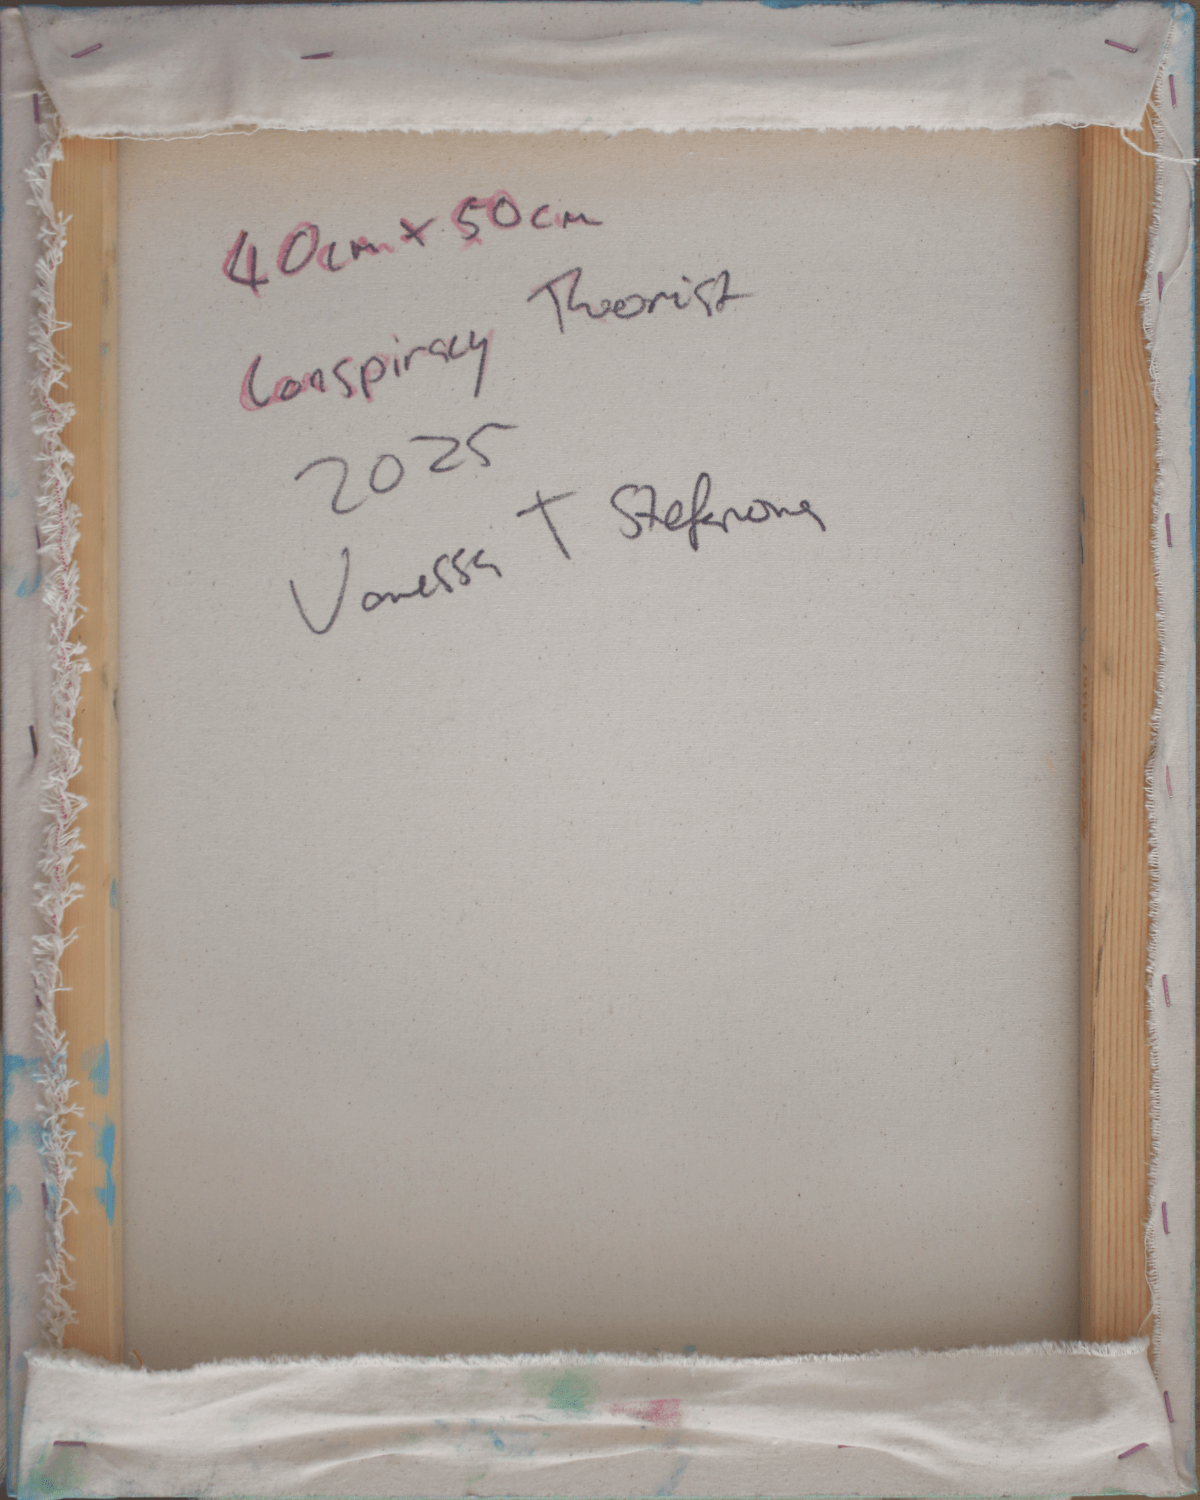 40cm x 50cm
Conspiracy Theorist
2025
Vanessa T Stefanova